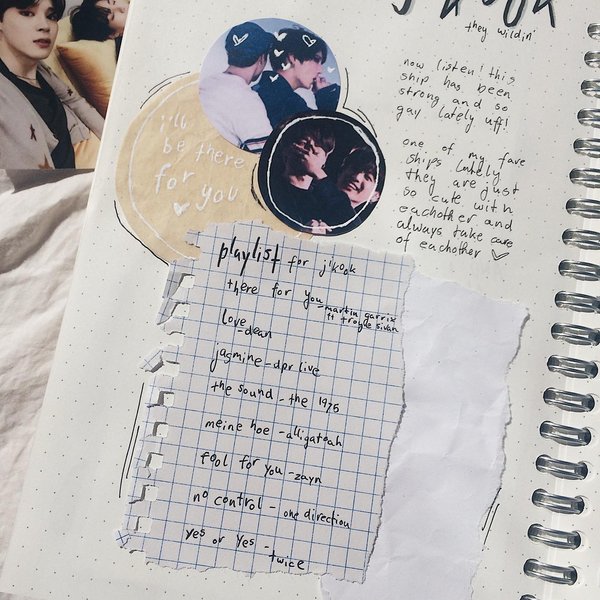 they wildin'
now listen! this
ship has been
strong and so
gay lately uff!
one of my fave
ships lately
they are just
so cute with
eachother and
always take care
of eachother
i'll
be there
for you
playlist for jikook
there for you - martin garrix
ft troye sivan
love
- dean
jasmine - dpr live
the sound - the 1975
meine hoe - alligatoah
fool for you - zayn
no control - one direction
yes or yes -
twice